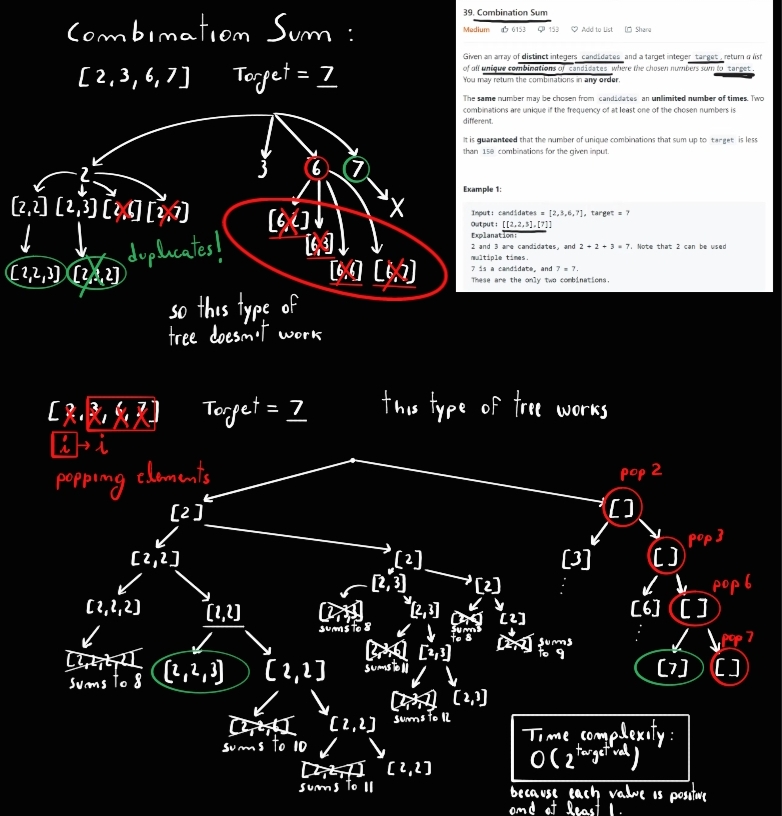 Combination Sum :
[2,3,6,7] Target = 7
39. Combination Sum
Medium 6153 153 Add to List Share
Given an array of distinct integers candidates and a target integer target, return a list
of all unique combinations of candidates where the chosen numbers sum to target.
You may return the combinations in any order.
The same number may be chosen from candidates an unlimited number of times. Two
combinations are unique if the frequency of at least one of the chosen numbers is
different.
It is guaranteed that the number of unique combinations that sum up to target is less
than 150 combinations for the given input.
Example 1:
Input: candidates = [2,3,6,7], target = 7
Output: [[2,2,3],[7]]
Explanation:
2 and 3 are candidates, and 2 + 2 + 3 = 7. Note that 2 can be used
multiple times.
7 is a candidate, and 7 = 7.
These are the only two combinations.
2 3 6 7
[2,2] [2,3] [2,6] [2,7] [6,2] X
[6,3]
duplicates!
[2,2,3] [2,3,2] [6,6] [6,7]
so this type of
tree doesn't work
[2,3,6,7] Target = 7 this type of tree works
i → i
popping elements
pop 2
[2] [ ]
pop 3
[2,2] [2] [3] [ ]
pop 6
[2,3] [2]
[2,2,2] [2,2] [2,3,3] [2,3] [2,6] [2] [6] [ ]
sums to 8 sums to 8
pop 7
[2,2,2,2] [2,2,3] [2,2] [2,3,6] [2,3] [2,7] sums to 9 [7] [ ]
sums to 8 sums to 11
[2,3,7] [2,3]
sums to 12
[2,2,6] [2,2]
sums to 10
[2,2,7] [2,2]
sums to 11
Time complexity:
O(2^target val)
because each value is positive
and at least 1.